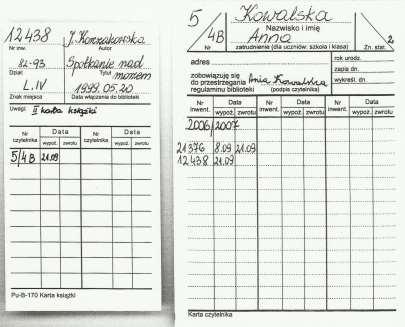 12438
Nr inw.
J. Korzakowska
Autor
82-93
Dział
Spotkanie nad morzem
Tytuł
L.IV
Znak miejsca
1999.05.20
Data włączenia do biblioteki
Uwagi II karta książki
Nr czytelnika Data Nr czytelnika Data
wypoż. zwrotu wypoż. zwrotu
5/4B 21.09
Pu-B-170 Karta książki
5 4B
Kowalska
Nazwisko i imię
Anna
zatrudnienie (dla uczniów, szkoła i klasa)
Zn. stat. 2
adres
rok urodz.
zapis dn.
wykreśl. dn.
zobowiązuję się
do przestrzegania
regulaminu biblioteki Ania Kowalska
(podpis czytelnika)
Nr inwent. Data Nr inwent. Data Nr inwent. Data
wypoż. zwrotu wypoż. zwrotu wypoż. zwrotu
2006/2007
21376 8.09 21.09
12438 21.09
Karta czytelnika